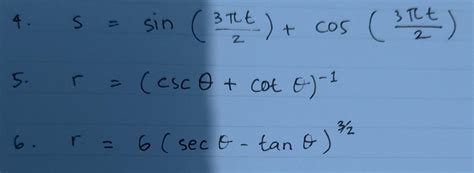 4. s = sin (3πt/2) + cos (3πt/2)
5. r = (csc θ + cot θ)⁻¹
6. r = 6 (sec θ - tan θ)^3/2